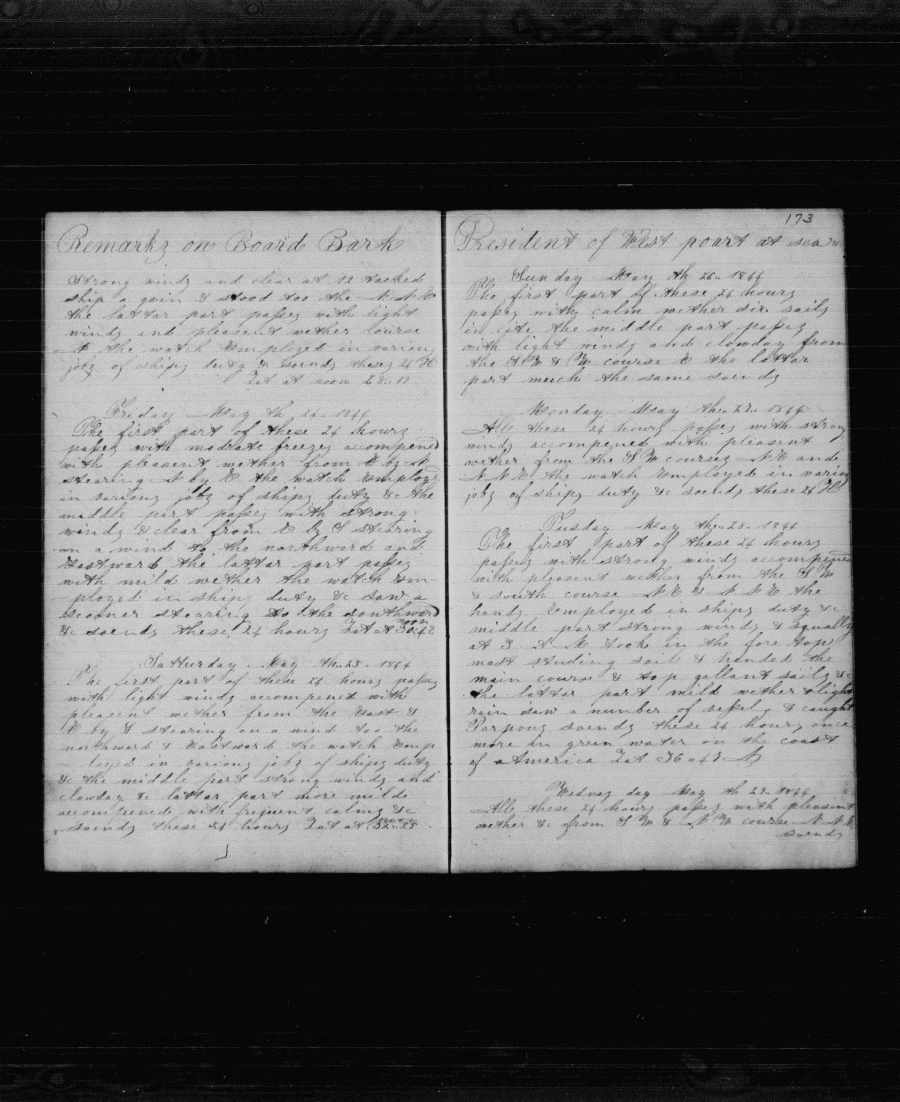 Remarks on Board Bark
Strong winds and clear at 12 tacked
ship a gain & stood too the N N E
the lattar part passes with light
winds and pleasent wether Course
the watch Employed in various
jobs of ships duty & soends these 24 H
Lat at noon 28-13
Friday May th 24-1844
The first part of these 24 hours
passes with modrate breezes acompened
with pleasent wether from E by N
stearing N by E the watch Employed
in various jobs of ships duty &c the
middle part passes with strong
winds & clear from E by S stearing
on a wind to the northward and
Eastward the lattar part passes
with mild wether the watch Em
ployed in ships duty & saw a
scooner stearing to the southward
&c soends these 24 hours Lat at noon
Satturday May th 25-1844
The first part of these 24 hours passes
with light winds acompened with
pleasent wether from the East &
E by S stearing on a wind too the
northward & Eastward the watch Emp
loyed in various jobs of ships duty
&c the middle part strong winds and
clowday &c lattar part more milde
acompened with frequent calms &c
soends these 24 hours Lat at noon 32-33
173
President of West poart at sea
Sunday May th 26-1844
The first part of these 24 hours
passes with calm wether six sails
in cite the middle part passes
with light winds and clowday from
the S W & W course E the lattar
part much the same soends
Monday May th 27-1844
Alle these 24 hours passes with strong
winds acompened with pleasent
wether from the S W courses N E and
N N E the watch Employed in various
jobs of ships duty &c soends these 24 H
Tusday May the 28-1844
The first part of these 24 hours
passes with strong winds acompened
with pleasent wether from the S W
& south course N E & N N E the
hands Employed in ships duty &c
middle part strong winds & squally
at 3 A M Took in the fore top
most studing sail & handed the
main course & top gallant sails &c
the lattar part mild wether & light
rain saw a number of & caught
Porpous soends these 24 hours once
more in green water on the coast
of America Lat 36 43 N
Wednes day May th 29-1844
Alle these 24 hours passes with pleasent
wether &c from S W & N W course N N E
soends